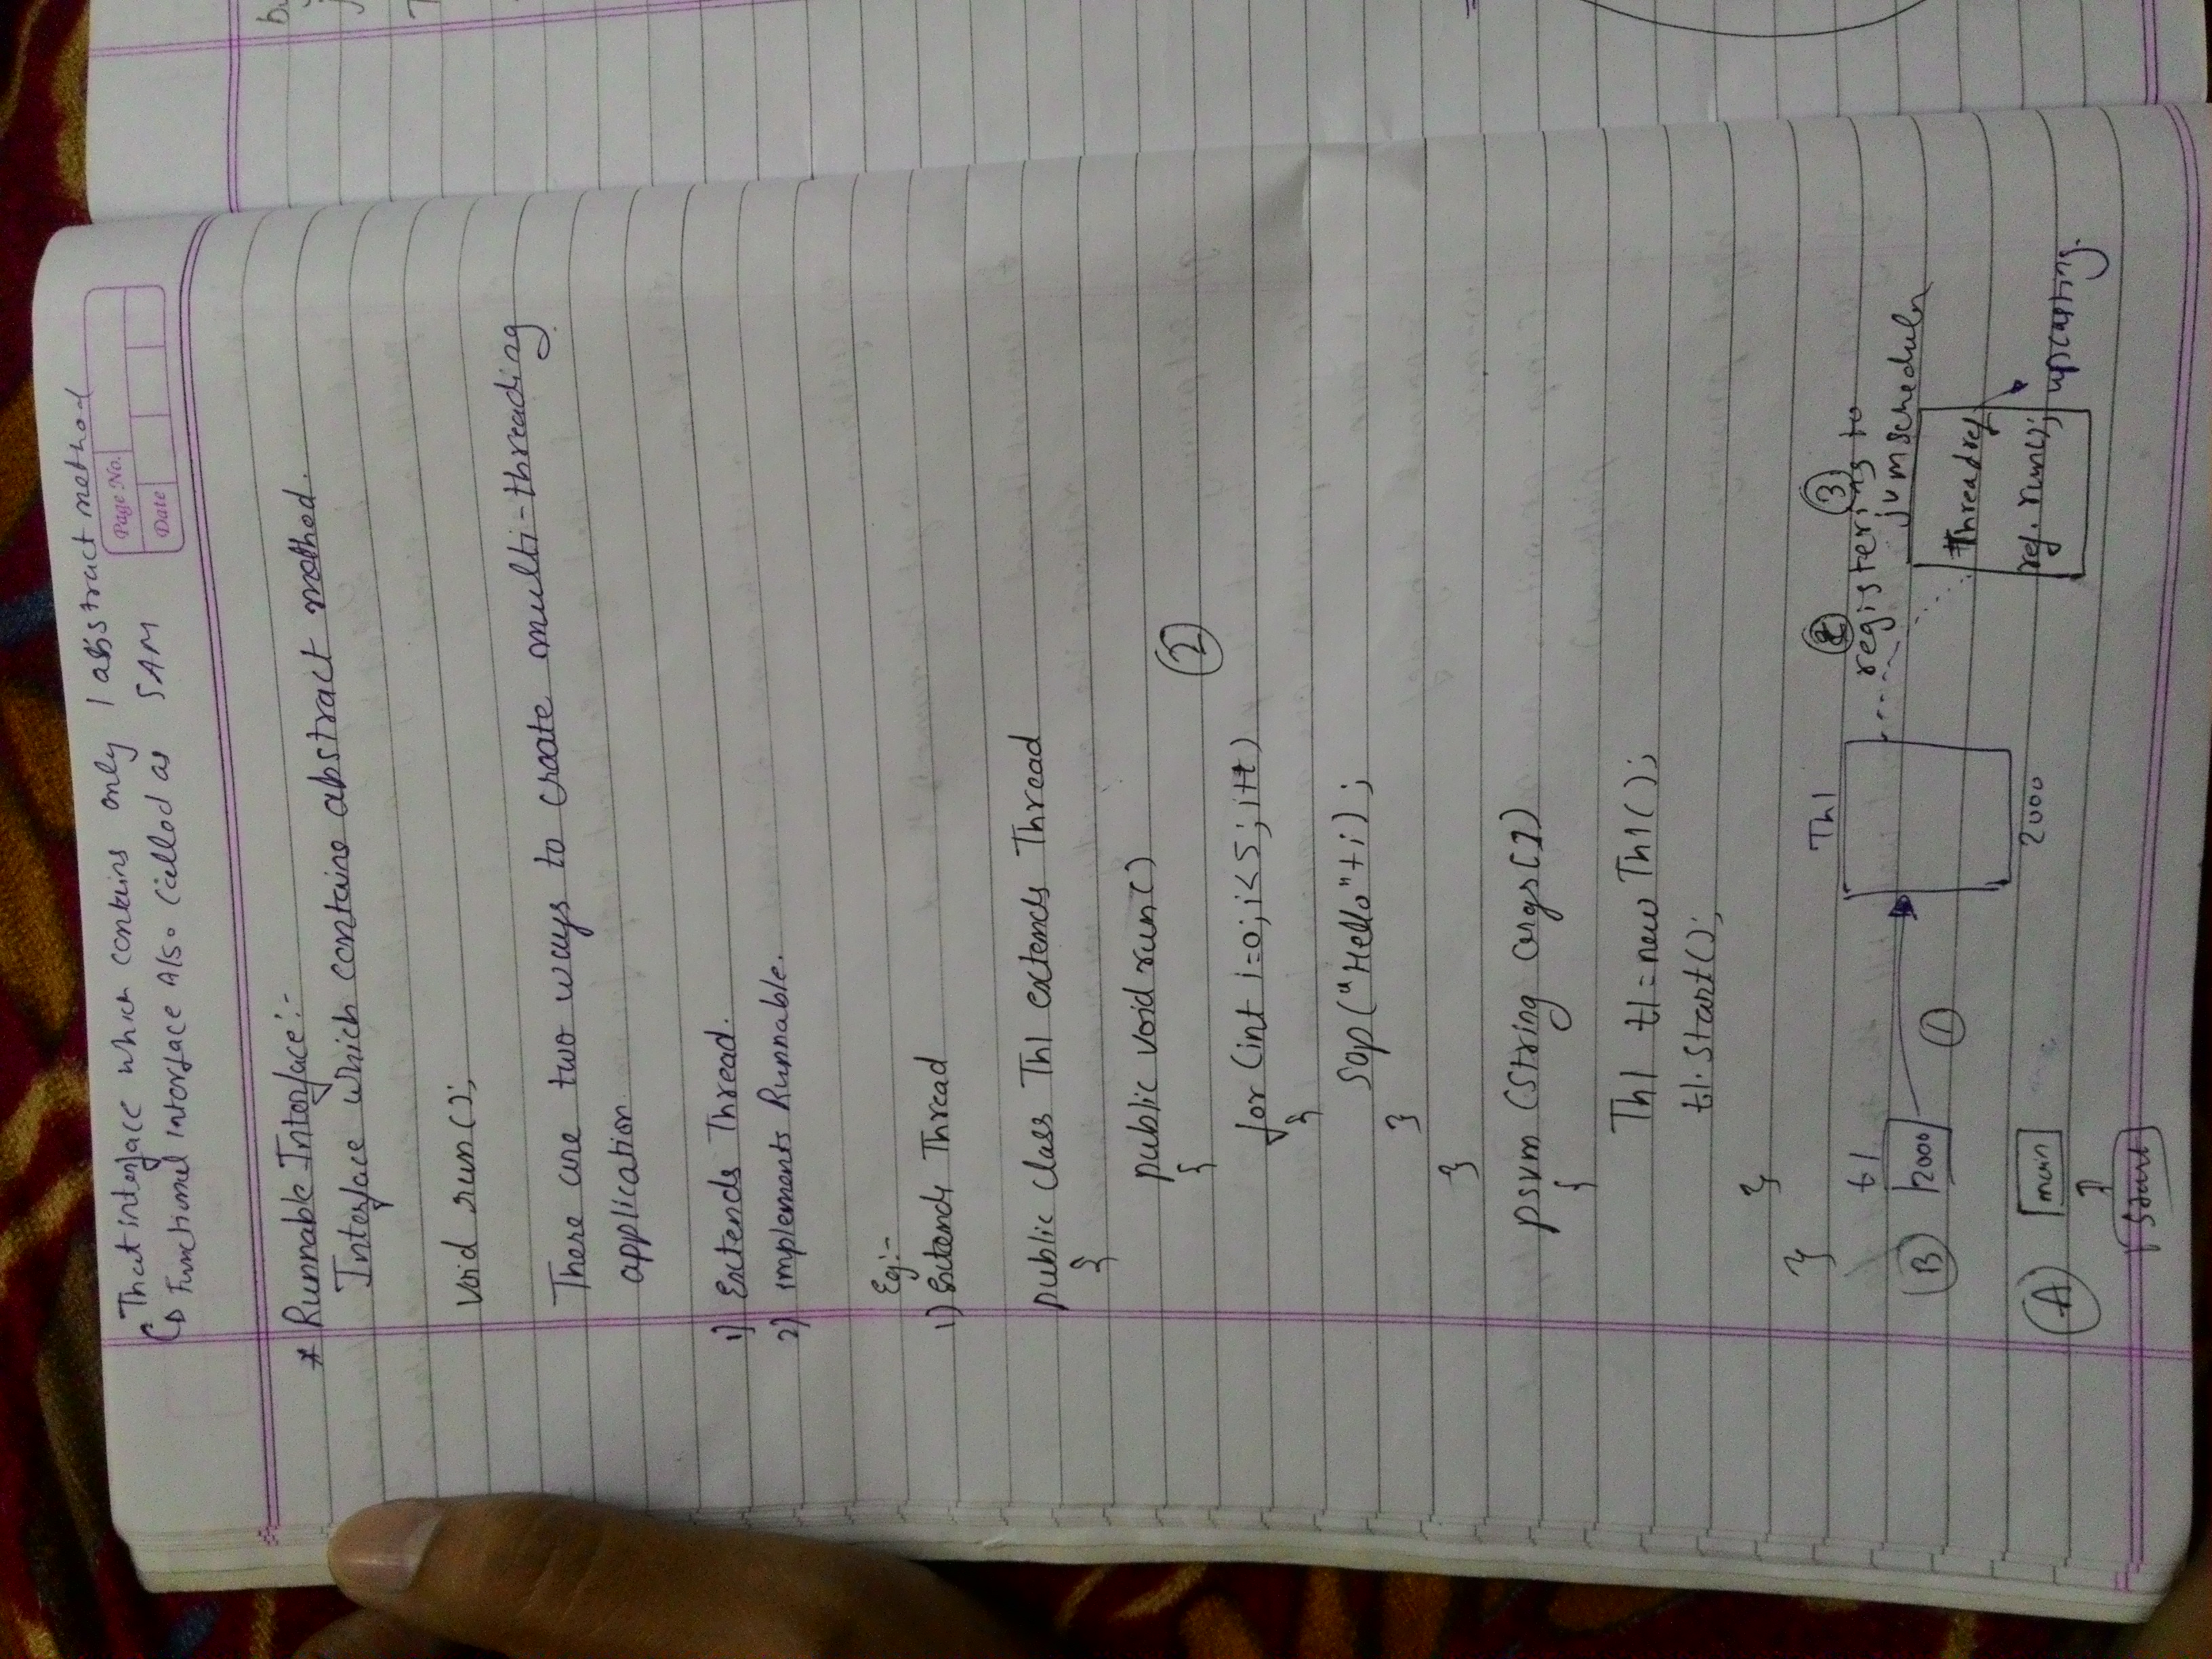 That interface which contains only 1 abstract method
Functional interface Also Called as SAM
Page No.
Date
* Runnable Interface:-
Interface which contains abstract method.
void run();
There are two ways to create multi-threading
application
1) Extends Thread.
2) implements Runnable.
Eg:-
1) Extends Thread
public class Th1 extends Thread
{
public void run()
{
2
for (int i=0; i<5; i++)
{
Sop("Hello"+i);
}
}
psvm (String args[])
{
Th1 t1=new Th1();
t1.start();
}
}
Th1
2 3
t1
registering to
jvm scheduler
B 2000
1
Thread ref
A main
2000
ref. run();
upcasting.
Start